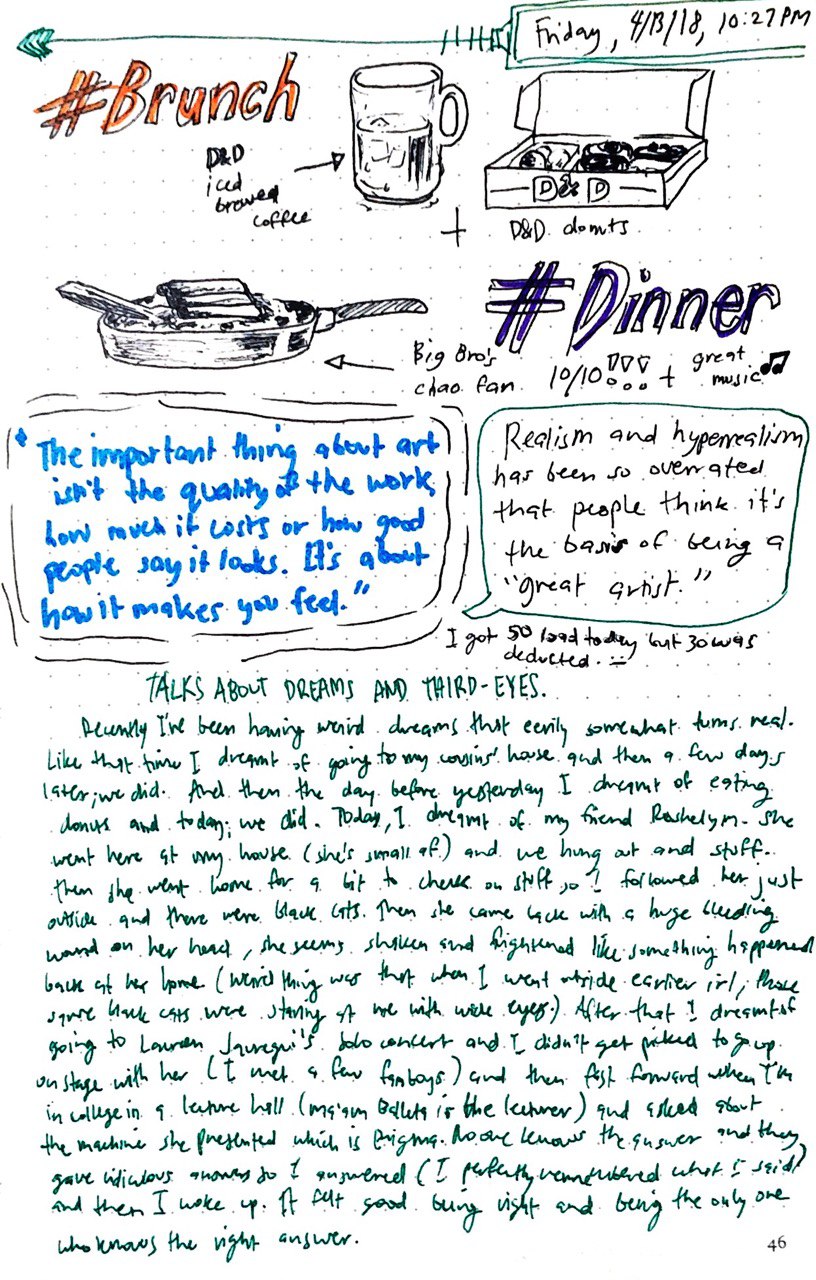 Friday, 4/13/18, 10:27 PM
#Brunch
D&D
iced
brewed
coffee
D&D
+
D&D donuts
#Dinner
Big Bro's
chao fan.
10/10!!! +
great
music
"The important thing about art
isn't the quality of the work,
how much it costs or how good
people say it looks. It's about
how it makes you feel."
Realism and hyperrealism
has been so overrated
that people think it's
the basis of being a
"great artist."
I got 50 load today but 30 was
deducted.
TALKS ABOUT DREAMS AND THIRD-EYES.
Recently I've been having weird dreams that eerily somewhat turns real.
Like that time I dreamt of going to my cousins' house and then a few days
later; we did. And then the day before yesterday I dreamt of eating
donuts and today; we did. Today, I dreamt of my friend Roshelyn. She
went here at my house (she's small af) and we hung out and stuff.
Then she went home for a bit to check on stuff so I followed her just
outside and there were black cats. Then she came back with a huge bleeding
wound on her head, she seems shaken and frightened like something happened
back at her home (weird thing was that when I went outside earlier irl, those
same black cats were staring at me with wide eyes.) After that I dreamt of
going to Lauren Jauregui's solo concert and I didn't get picked to go up
on stage with her (I met a few fanboys) and then fast forward when I'm
in college in a lecture hall (ma'am Balleta is the lecturer) and asked about
the machine she presented which is Enigma. No one knows the answer and they
gave ridiculous answers so I answered (I perfectly remembered what I said)
and then I woke up. It felt good being right and being the only one
who knows the right answer.
46